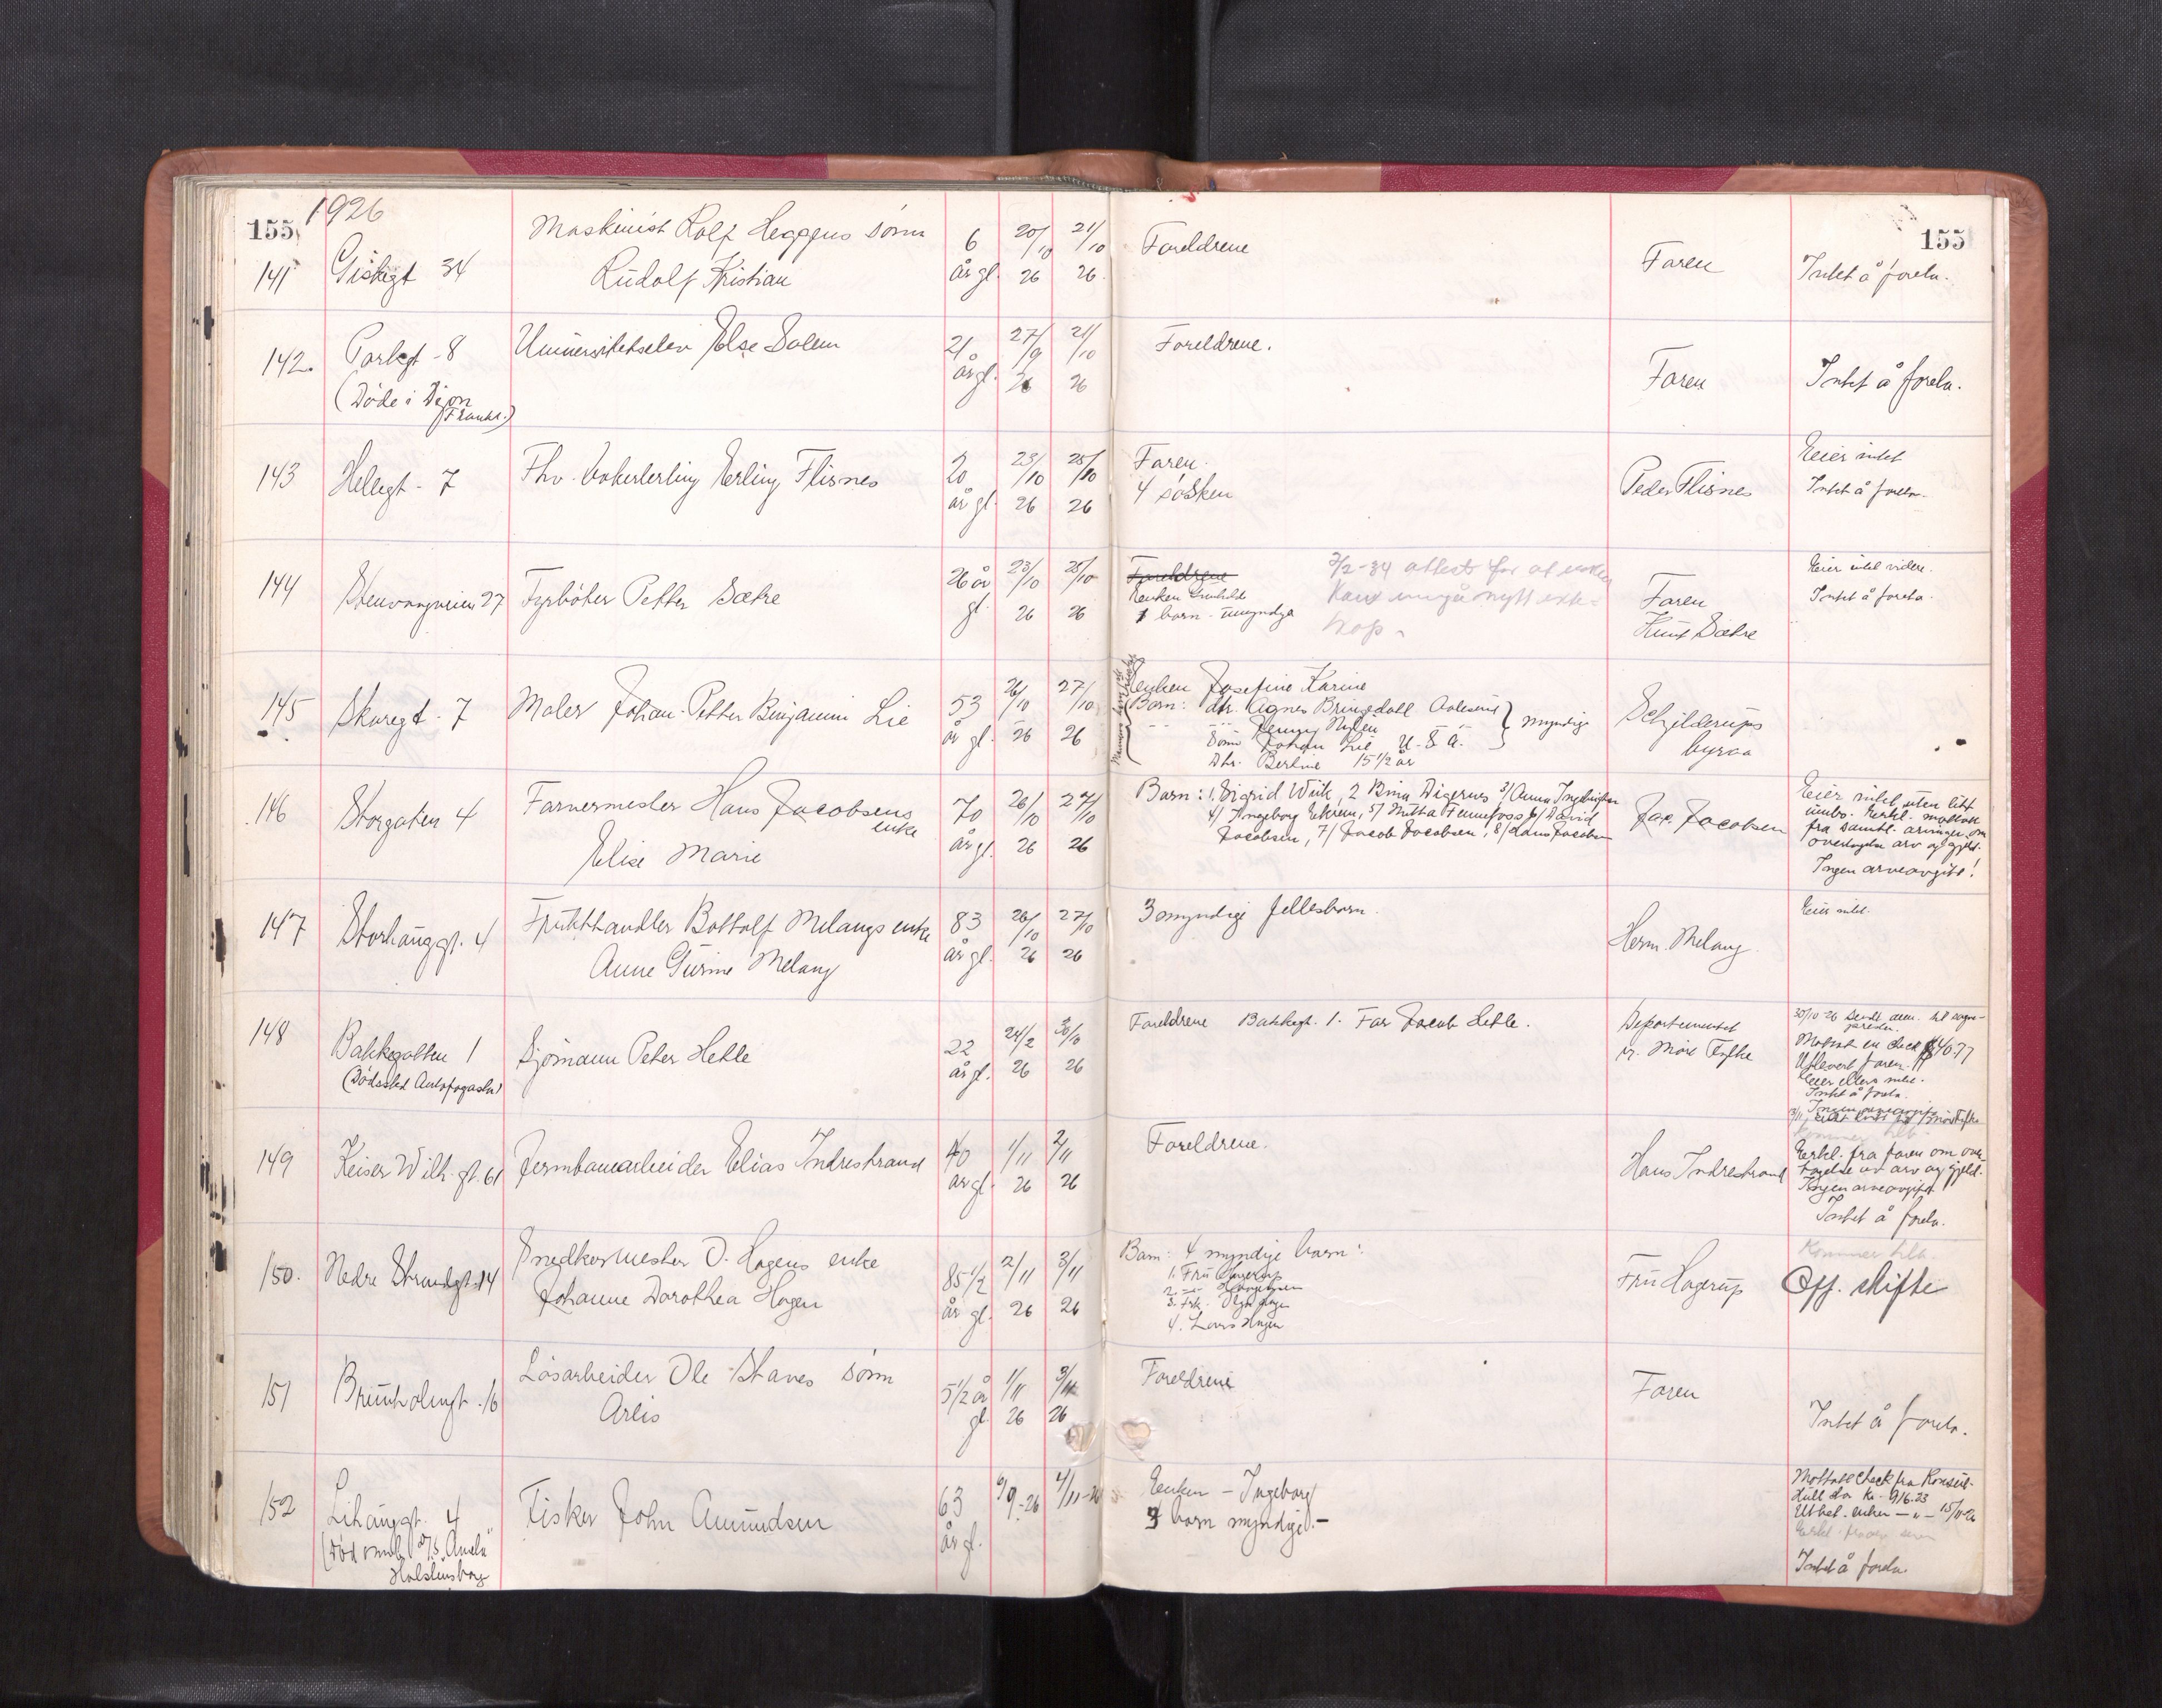 155 1926
155
141 Giskegt 34 Maskinist Rolf Heggens sønn 6 20/10 21/10 Foreldrene Faren Intet å foreta.
Rudolf Kristian år gl. 26 26.
142. Parkgt - 8 Universitetselev Else Solem 21 27/9 21/10 Foreldrene. Faren Intet å foreta.
(Døde i Dijon år gl. 26 26
Frankr.)
143 Hellegt - 7 Fhv. Erling Flisnes 20 23/10 25/10 Faren. Peder Flisnes Eier intet
år gl. 26 26 4 søsken Intet å foreta.
144 Stenvaagveien 27 Fyrbøter Petter Sætre 26 år 23/10 25/10 Foreldrene 7/2-34 attest for at enken Faren Eier intet videre.
gl. 26 26 Enken Gunhild kan inngå nytt ekte- Knut Sætre Intet å foreta.
1 barn - umyndig skap.
145 Skaregt - 7 Maler Johan Petter Benjamin Lie 53 26/10 27/10 Enken Josefine Karine Schjelderups
år gl. 26 26 Barn: dtr. Agnes Brinsdall Aalesund } myndige byraa
Sønn Johan Lie U.S.A.
Dtr. Berline 15 1/2 år
146 Storgaten 4 Farvermester Hans Jacobsens 70 26/10 27/10 Barn: 1. Sigrid Wiik, 2 Digernes 3/ Anna
enke 4/ Ingeborg Ekrem, 5/ Fennefoss 6/ David
Elise Marie år gl. 26 26 Jacobsen, 7/ Jacob Jacobsen, 8/ Hans Jacobsen Jac. Jacobsen
Eier intet uten litt
innbo. Erkl. mottatt
fra samtl. arvinger om
overtagelse arv og gjeld.
Ingen arveavgift!
147 Storhauggt. 4 Frukthandler Bottolf Melangs enke 83 26/10 27/10 3 myndige fellesbarn. Herm. Melang Eier intet.
Anne Gurine Melang år gl. 26 26
148 Bakkegatten 1 Sjømann Peter Helle 22 24/2 30/10 Foreldrene Bakkegt. 1. Far Jacob Helle. Departementet
(Dødssted Antofogasta) år gl. 26 26 v. Møre Fylke
30/10-26 Sendt anm. til sogne-
Mottat en check 40.77
Utlevert faren.
Eier ellers intet.
Intet å foreta.
Ingen arveavgift
149 Keiser Wilh. gt. 61 Jernbanearbeider Elias Indrestrand 40 1/11 2/11 Foreldrene. Hans Indrestrand
år gl. 26 26
Erkl. fra faren om over-
tagelse av arv og gjeld.
Ingen arveavgift
Intet å foreta.
150. Nedre Strandgt. 14 Snedkermester O. Hagens enke 85 1/2 2/11 3/11 Barn: 4 myndige barn: Fru Hagerup Kommer tilb.
Johanne Dorothea Hagen år gl. 26 26 1. Fru Hagerup Off. skifte
3. Frk. Olga Hagen
4. Lars Hagen
151 Brunholmgt. 16 Løsarbeider Ole Staves sønn 5 1/2 år 1/11 3/11 Foreldrene Faren
Arlis gl. 26 26 Intet å foreta.
152 Lihauggt. 4 Fisker John Amundsen 63 6/9-26 4/11-26 Enken - Ingeborg
(Død ombord D/S "Amela" år gl. 3 barn myndige. -
Holstensborg
Mottatt check fra Konsul.
Hull stor Kr. 916.23
Utbet. enken - " - 15/11-26
Intet å foreta.